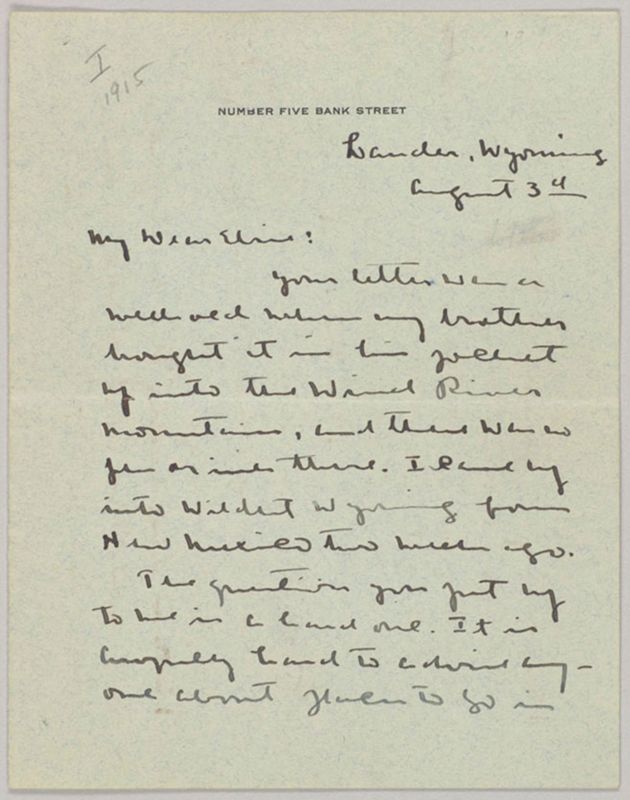 I
1915
NUMBER FIVE BANK STREET
Lander, Wyoming
August 3d
My Dear Elsie:
Your letter was a
week old when my brother
brought it in his pocket
up into the Wind River
mountains, and there was no
pen or ink there. I came up
into Wildest Wyoming from
New Mexico two weeks ago.
The question you put up
to me is a hard one. It is
awfully hard to advise any-
one about places to go in